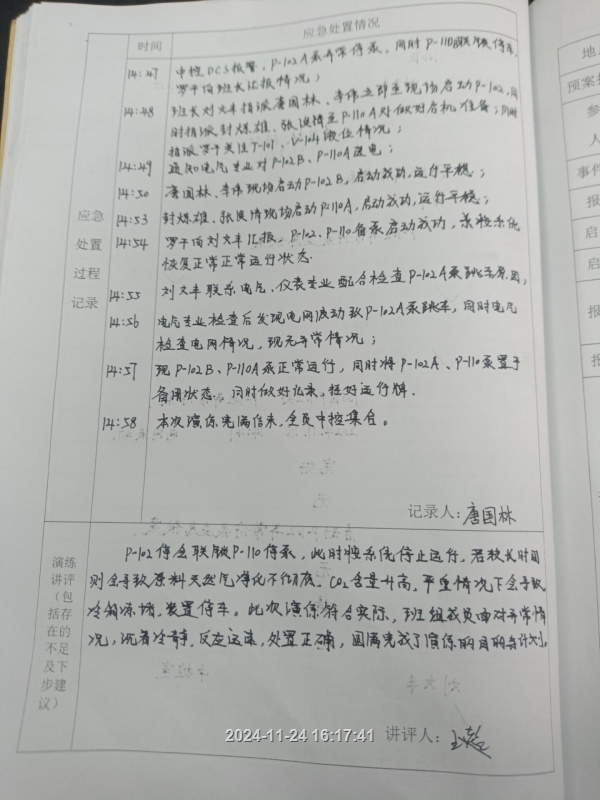 应急处置情况
时间
14:47 中控DCS报警，P-102A泵异常停泵，同时P-110B联锁停车，
罗于向班长汇报情况；
14:48 班长刘文丰指派唐国林、李伟立即至现场启动P-102，同
时指派封炼雄、张 至P-110A处做好启机准备；同时
指派罗于关注T-101、V-104液位情况；
14:49 通知电气专业对P-102B、P-110A送电；
14:50 唐国林、李伟现场启动P-102B，启动成功，运行平稳；
14:53 封炼雄、张 现场启动P-110A，启动成功，运行平稳；
14:54 罗于向刘文丰汇报，P-102、P-110备泵启动成功， 系统
恢复正常正常运行状态.
14:55 刘文丰联系电气、仪表专业配合检查P-102A泵跳车原因，
14:56 电气专业检查后发现电网波动致P-102A泵跳车，同时电气
检查电网情况，现无异常情况；
14:57 现P-102B、P-110A泵正常运行，同时将P-102A、P-110泵置于
备用状态. 同时做好记录，挂好运行牌.
14:58 本次演练完满结束，全员中控集合。
应急
处置
过程
记录
记录人：唐国林
演练
讲评
（包
括存
在的
不足
及下
步建
议）
P-102停会联锁P-110停泵，此时 系统停止运行，若较长时间
则会导致原料天然气净化不彻底，CO₂含量升高，严重情况下会导致
冷箱冻堵，装置停车。此次演练符合实际，班组成员面对异常情
况，沉着冷静，反应迅速，处置正确，圆满完成了演练的目的与计划。
讲评人：
2024-11-24 16:17:41
地
预案
参
人
事件
报
启
启
报
报